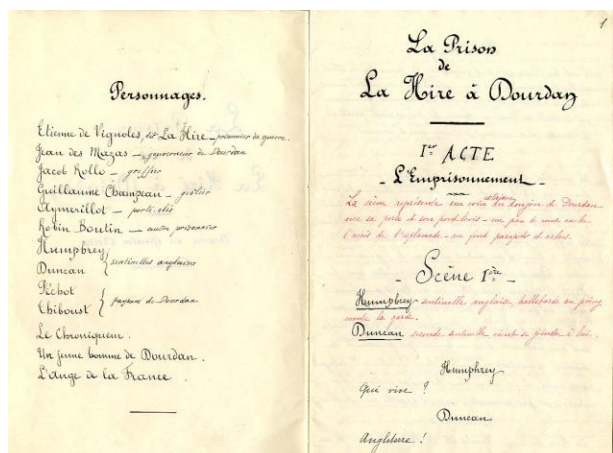 Personnages.
Etienne de Vignoles, dit La Hire — prisonnier de guerre.
Jean des Mazas — gouverneur de Dourdan
Jacob Rollo — greffier
Guillaume Champeau — geôlier
Aymerillot — porte-clés
Robin Boutin — autre prisonnier
Humphrey
Duncan
sentinelles anglaises
Péchot
Chiboust
paysans de Dourdan
Le Chroniqueur.
Un jeune homme de Dourdan.
L'Ange de la France
1
La Prison
de
La Hire à Dourdan
Ier ACTE
- L'Emprisonnement -
La scène représente un coin du donjon de Dourdan
avec sa porte et son pont-levis - un pan de mur cache
l'entrée de l'esplanade - au fond parapets et arbres.
- Scène Ière -
Humphrey sentinelle anglaise, hallebarde au poing
monte la garde.
Duncan seconde sentinelle vient se joindre à lui.
Humphrey
Qui vive ?
Duncan
Angleterre !